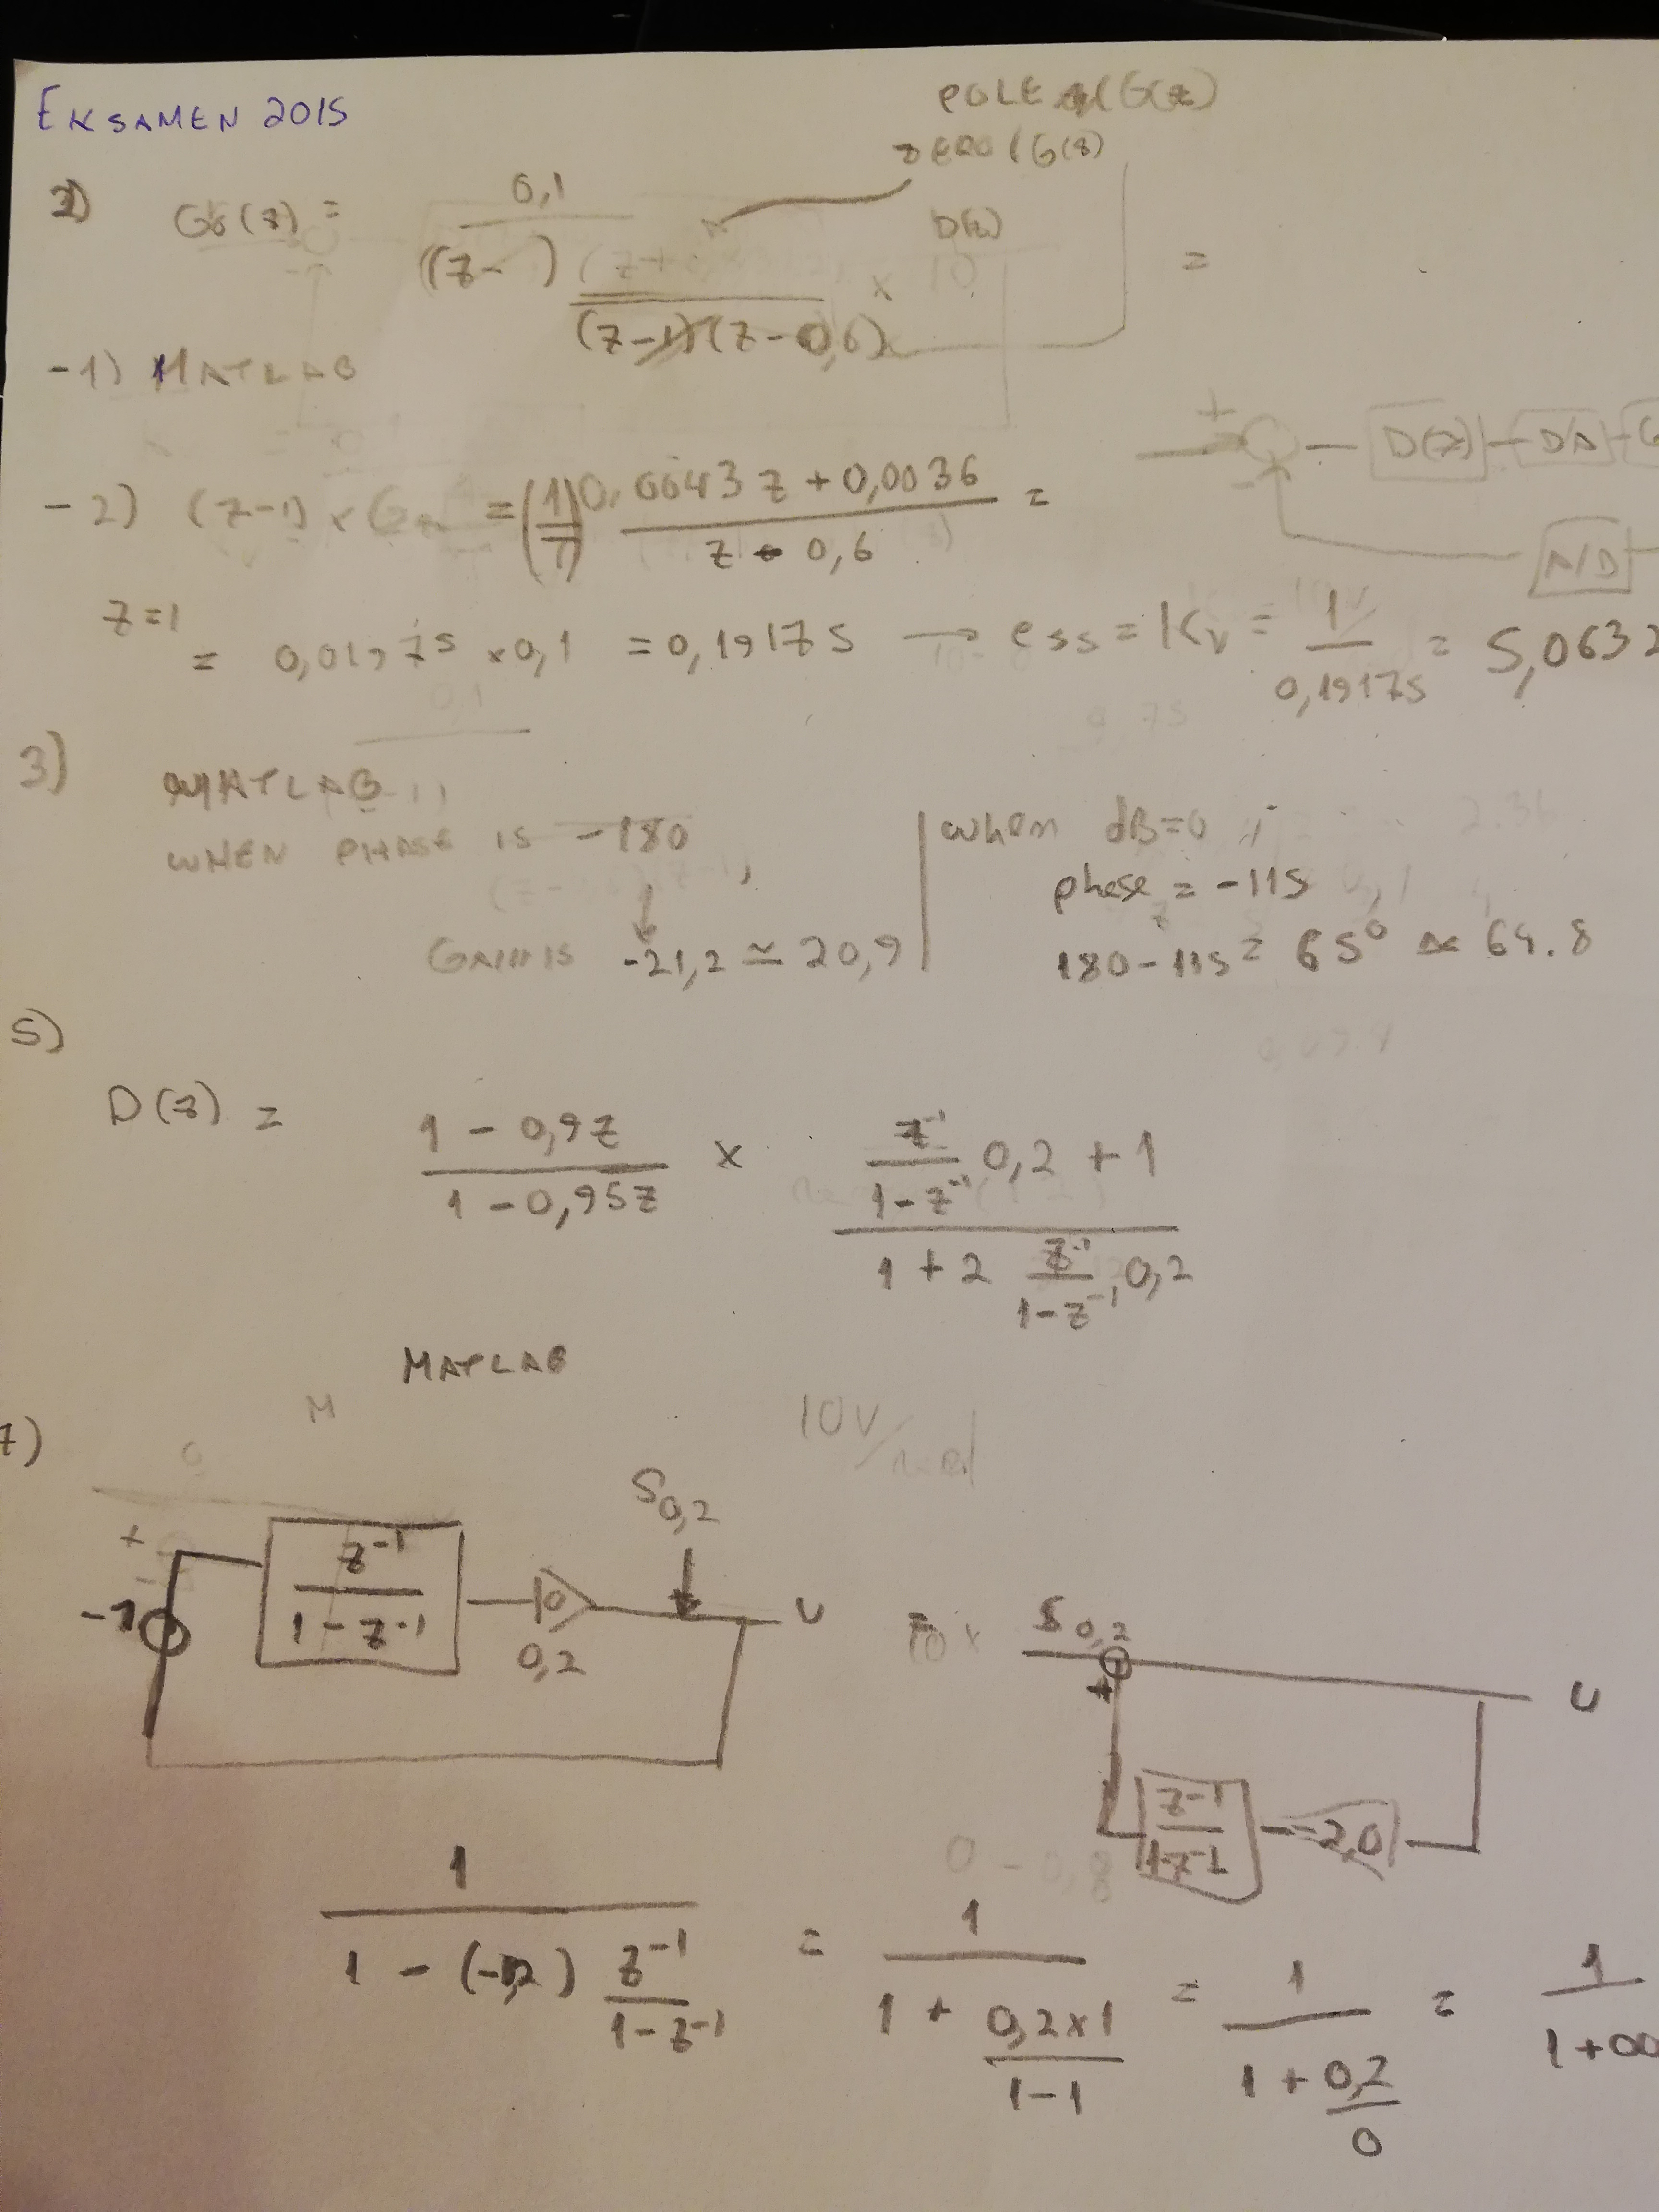 EKSAMEN 2015
POLE G(z)
ZERO (G(z)
2) G(z) = 0,1
((z- ) (z+
D(z)
x 10 =
(z-1)(z-0,6)
-1) MATLAB
+ - D(z) DA
-2) (z-1) x G = (1/T) 0,0043z + 0,0036 / z - 0,6 =
A/D
z=1
= 0,01975 x 0,1 = 0,19175 → ess = Kv = 1 / 0,19175 = 5,0632
3) MATLAB
WHEN PHASE IS -180
↓
GAIN IS -21,2 ≃ 20,9
when dB=0
phase = -115
180-115 = 65° ≃ 64.8
5)
D(z) = 1 - 0,9z / 1 - 0,95z x (z⁻¹ / 1-z⁻¹ 0,2 + 1) / (1 + 2 z⁻¹ / 1-z⁻¹ 0,2)
MATLAB
M
10V/rad
7)
+ -1 z⁻¹ / 1 - z⁻¹ 0,2 S0,2 U
= 10 x S0,2 U
+ z-1 / 1-z-1
0 - 0,8
1 / 1 - (-0,2) z⁻¹ / 1-z⁻¹ = 1 / 1 + 0,2x1 / 1-1 = 1 / 1 + 0,2 / 0 = 1 / 1+∞